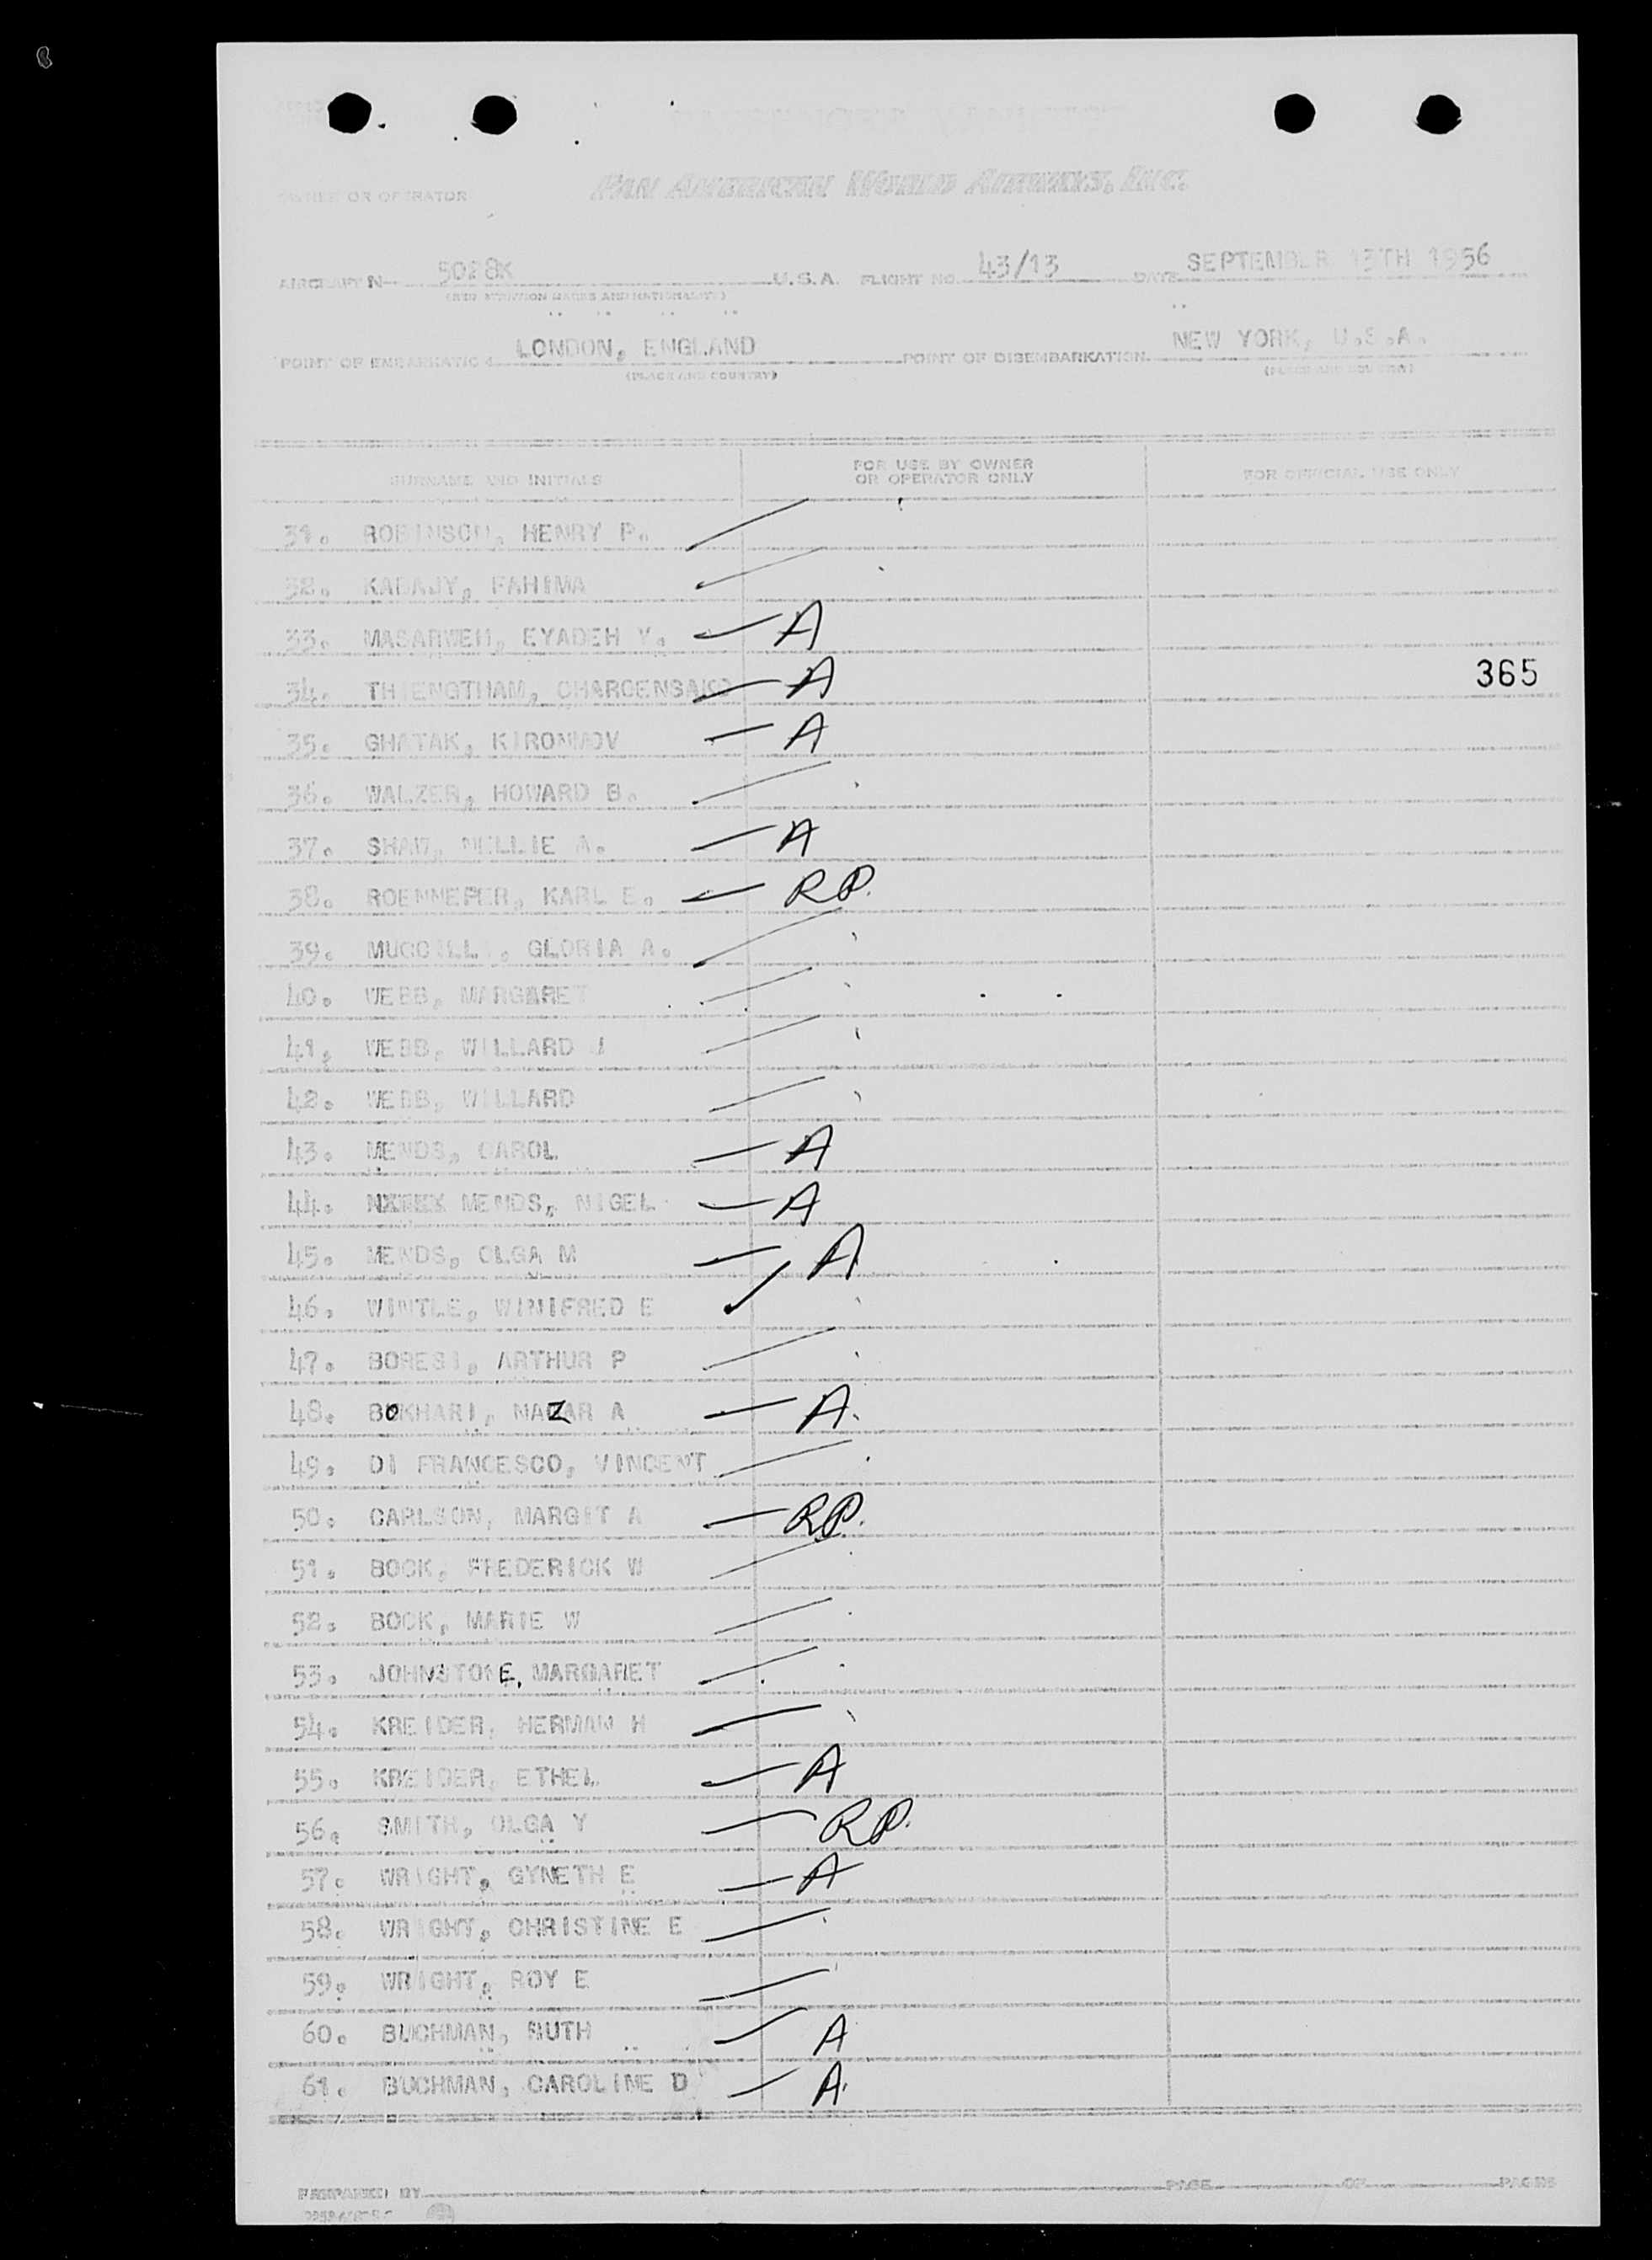 OWNER OR OPERATOR PAN AMERICAN WORLD AIRWAYS, INC.
AIRCRAFT N- 5028K U.S.A. FLIGHT NO. 43/13 DATE SEPTEMBER 13TH 1956
(REGISTRATION MARKS AND NATIONALITY)
POINT OF EMBARKATION LONDON, ENGLAND POINT OF DISEMBARKATION NEW YORK, U.S.A.
(PLACE AND COUNTRY) (PLACE AND COUNTRY)
SURNAME AND INITIALS FOR USE BY OWNER OR OPERATOR ONLY FOR OFFICIAL USE ONLY
31. ROBINSON, HENRY P.
32. KABAJY, FAHIMA
33. MASARWEH, EYADEH Y. A
34. THIENGTHAM, CHAROENSAKD A 365
35. GHATAK, KIRONMOV A
36. WALZER, HOWARD B.
37. SHAW, NELLIE A. A
38. ROENNEPER, KARL E. RP.
39. GLORIA A.
40. WEBB, MARGARET
41. WEBB, WILLARD J
42. WEBB, WILLARD
43. MENDS, CAROL A
44. MENDS, NIGEL A
45. MENDS, OLGA M A
46. WINTLE, WINIFRED E
47. BORESI, ARTHUR P
48. BOKHARI, NAZAR A A.
49. DI FRANCESCO, VINCENT
50. CARLSON, MARGIT A RP.
51. BOCK, FREDERICK W
52. BOCK, MARIE W
53. JOHNSTONE, MARGARET
54. KREIDER, HERMAN H
55. KREIDER, ETHEL A
56. SMITH, OLGA Y RP.
57. WRIGHT, GYNETH E A
58. WRIGHT, CHRISTINE E
59. WRIGHT, ROY E
60. BUCHMAN, RUTH A
61. BUCHMAN, CAROLINE D A.
PREPARED BY PAGE OF PAGES